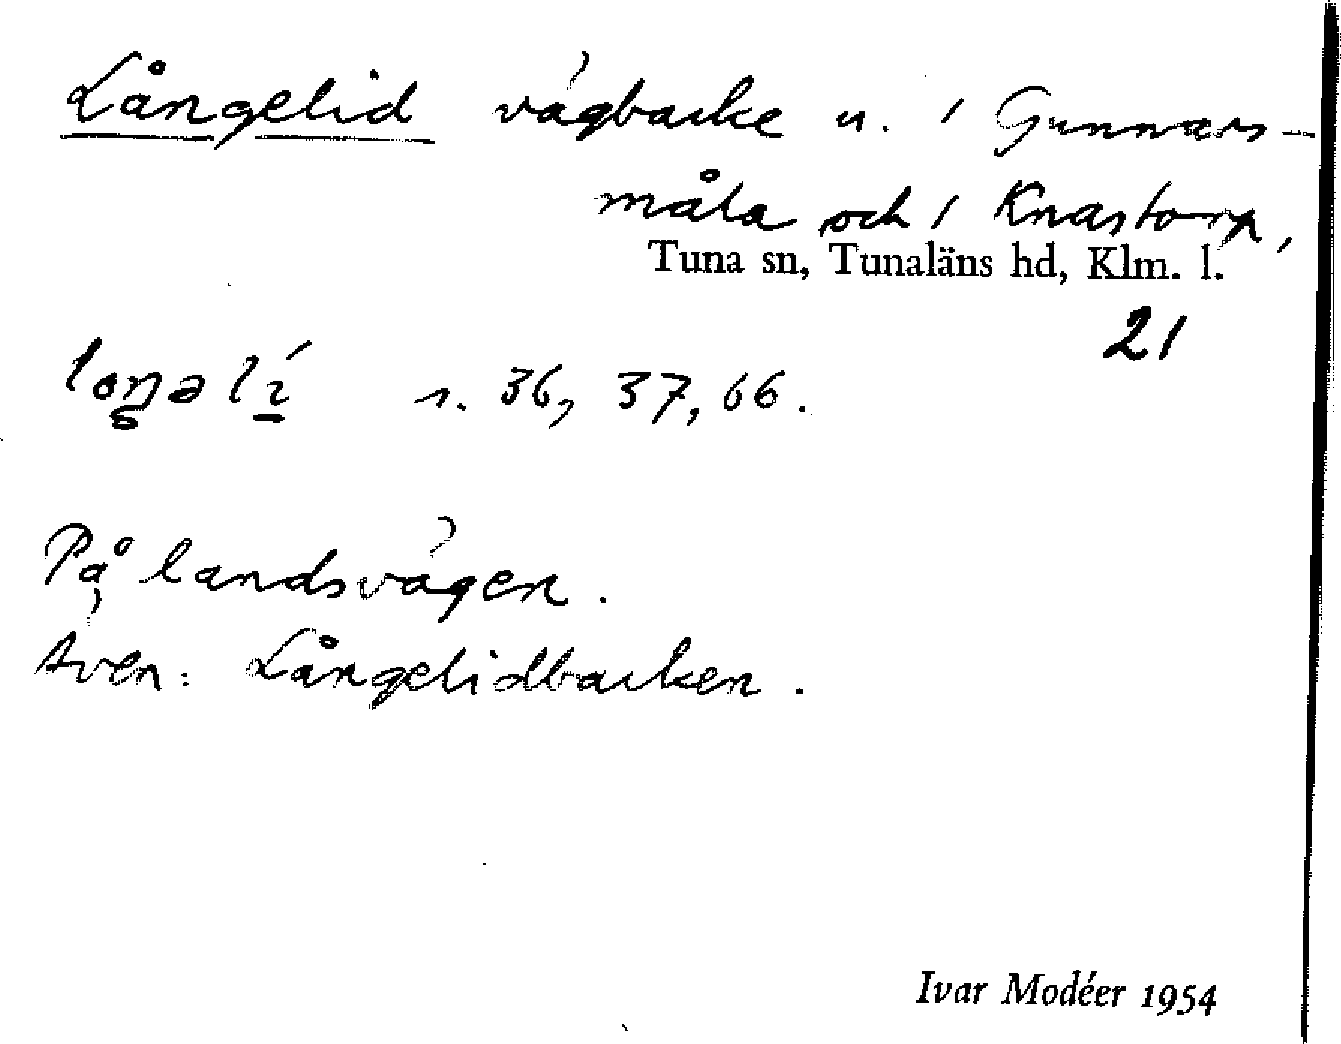 Långelid vägbacke u. 1 Gunnars-
måla och 1 Knastorp,
Tuna sn, Tunaläns hd, Klm. l.
21
s. 36, 37, 66.
På landsvägen.
Även: Långelidbacken.
Ivar Modéer 1954